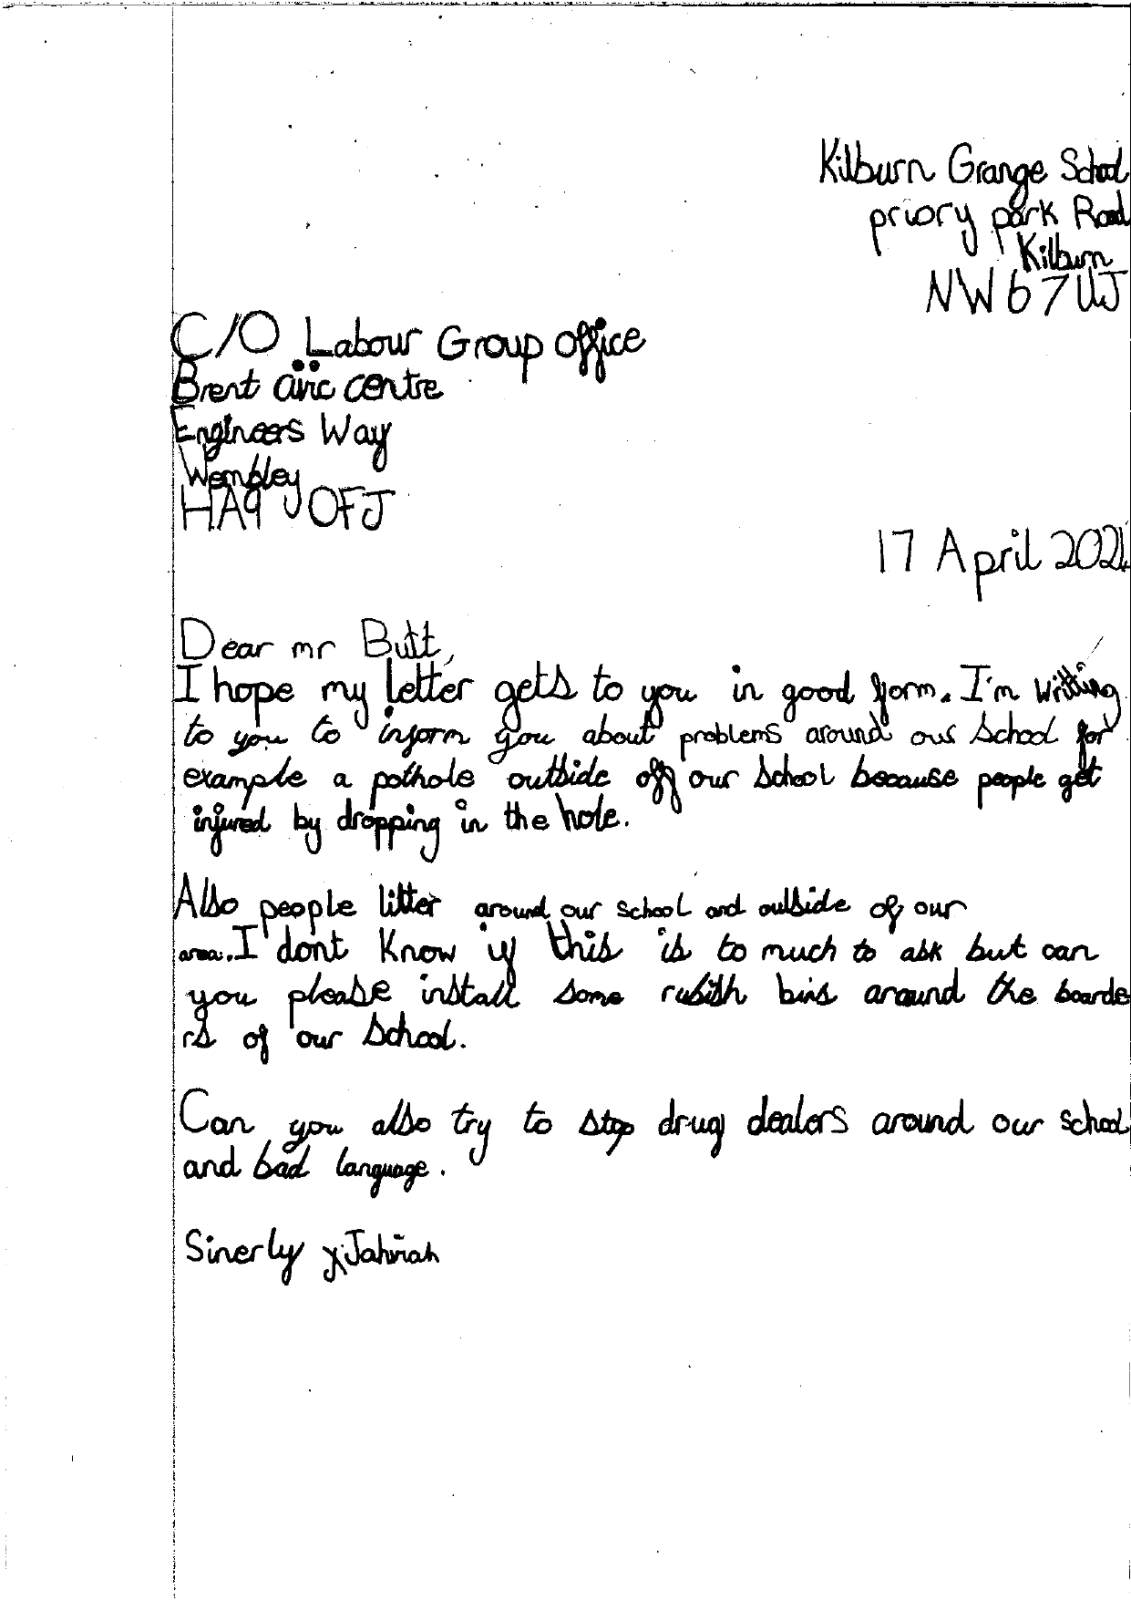 Kilburn Grange School
priory park Road
Kilburn
NW6 7UJ
C/O Labour Group office
Brent civic centre
Engineers Way
Wembley
HA9 0FJ
17 April 2024
Dear mr Butt,
I hope my letter gets to you in good form. I'm writting
to you to inform you about problems around our school for
example a pothole outside off our school because people get
injured by dropping in the hole.
Also people litter around our school and outside of our
area. I dont know if this is to much to ask but can
you please install some rubish bins around the boarde
rs of our school.
Can you also try to stop drug dealers around our school
and bad language.
Sinerly